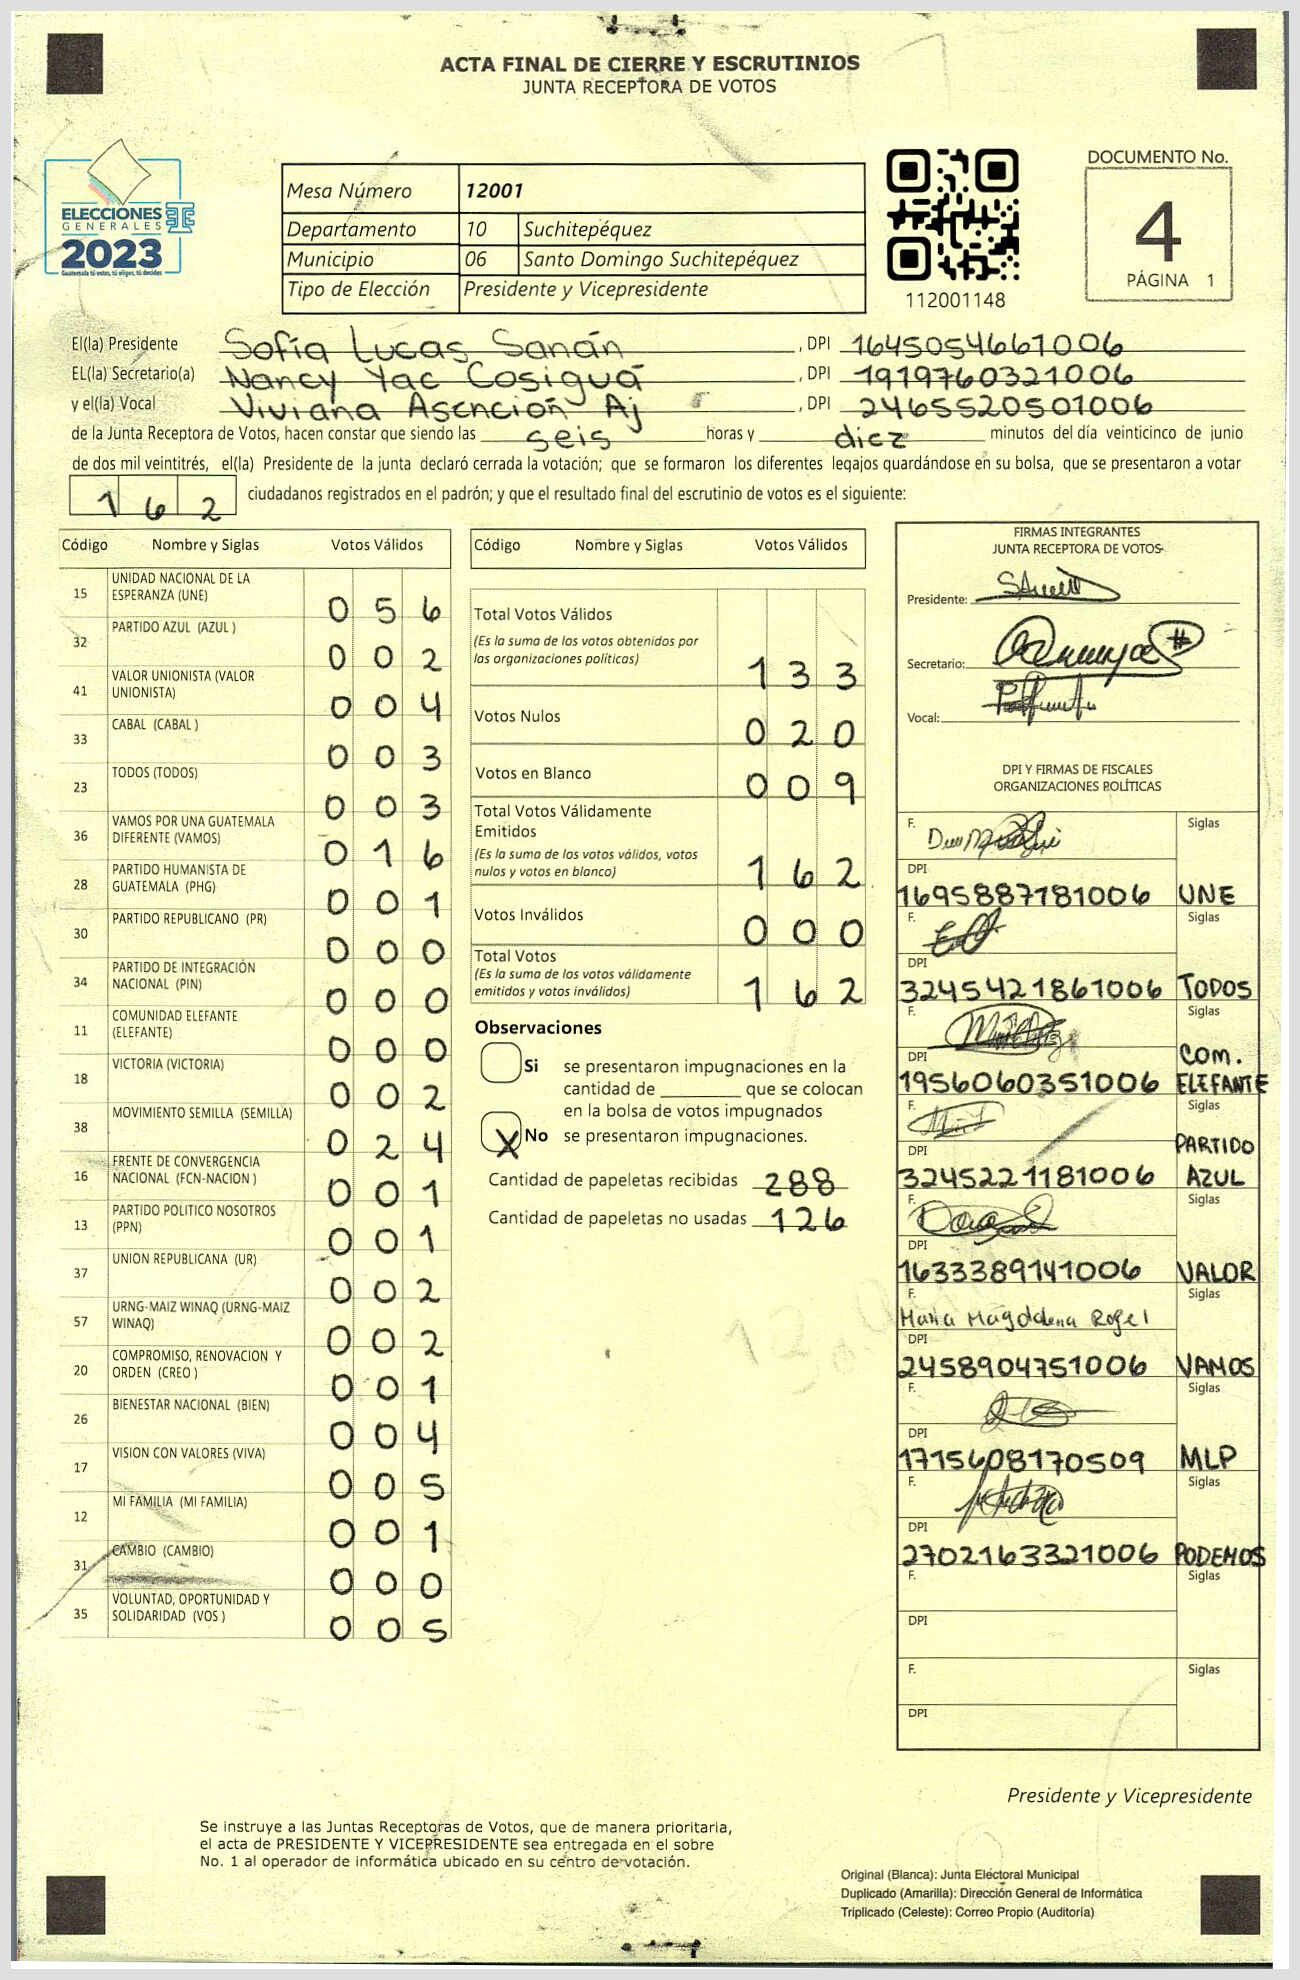 ACTA FINAL DE CIERRE Y ESCRUTINIOS
JUNTA RECEPTORA DE VOTOS
ELECCIONES
GENERALES
2023
Guatemala tú votas, tú eliges, tú decides
Mesa Número 12001
Departamento 10 Suchitepéquez
Municipio 06 Santo Domingo Suchitepéquez
Tipo de Elección Presidente y Vicepresidente
112001148
DOCUMENTO No.
4
PÁGINA 1
El(la) Presidente Sofía Lucas Sanán, DPI 1645054661006
EL(la) Secretario(a) Nancy Yac Cosiguá, DPI 1919760321006
y el(la) Vocal Viviana Asención Aj, DPI 2465520501006
de la Junta Receptora de Votos, hacen constar que siendo las seis horas y diez minutos del día veinticinco de junio
de dos mil veintitrés, el(la) Presidente de la junta declaró cerrada la votación; que se formaron los diferentes legajos guardándose en su bolsa, que se presentaron a votar
162 ciudadanos registrados en el padrón; y que el resultado final del escrutinio de votos es el siguiente:
Código Nombre y Siglas Votos Válidos
15 UNIDAD NACIONAL DE LA ESPERANZA (UNE) 056
32 PARTIDO AZUL (AZUL ) 002
41 VALOR UNIONISTA (VALOR UNIONISTA) 004
33 CABAL (CABAL ) 003
23 TODOS (TODOS) 003
36 VAMOS POR UNA GUATEMALA DIFERENTE (VAMOS) 016
28 PARTIDO HUMANISTA DE GUATEMALA (PHG) 001
30 PARTIDO REPUBLICANO (PR) 000
34 PARTIDO DE INTEGRACIÓN NACIONAL (PIN) 000
11 COMUNIDAD ELEFANTE (ELEFANTE) 000
18 VICTORIA (VICTORIA) 002
38 MOVIMIENTO SEMILLA (SEMILLA) 024
16 FRENTE DE CONVERGENCIA NACIONAL (FCN-NACION ) 001
13 PARTIDO POLITICO NOSOTROS (PPN) 001
37 UNION REPUBLICANA (UR) 002
57 URNG-MAIZ WINAQ (URNG-MAIZ WINAQ) 002
20 COMPROMISO, RENOVACION Y ORDEN (CREO ) 001
26 BIENESTAR NACIONAL (BIEN) 004
17 VISION CON VALORES (VIVA) 005
12 MI FAMILIA (MI FAMILIA) 001
31 CAMBIO (CAMBIO) 000
35 VOLUNTAD, OPORTUNIDAD Y SOLIDARIDAD (VOS ) 005
Código Nombre y Siglas Votos Válidos
Total Votos Válidos 133
(Es la suma de los votos obtenidos por
las organizaciones políticas)
Votos Nulos 020
Votos en Blanco 009
Total Votos Válidamente
Emitidos 162
(Es la suma de los votos válidos, votos
nulos y votos en blanco)
Votos Inválidos 000
Total Votos 162
(Es la suma de los votos válidamente
emitidos y votos inválidos)
Observaciones
Si se presentaron impugnaciones en la
cantidad de ________ que se colocan
en la bolsa de votos impugnados
X No se presentaron impugnaciones.
Cantidad de papeletas recibidas 288
Cantidad de papeletas no usadas 126
FIRMAS INTEGRANTES
JUNTA RECEPTORA DE VOTOS
Presidente:
Secretario:
Vocal:
DPI Y FIRMAS DE FISCALES
ORGANIZACIONES POLÍTICAS
F. Siglas
DPI
1695887181006 UNE
F. Siglas
DPI
3245421861006 TODOS
F. Siglas
DPI COM.
1956060351006 ELEFANTE
F. Siglas
DPI PARTIDO
3245221181006 AZUL
F. Siglas
DPI
1633389141006 VALOR
F. Siglas
Maria Magdalena Rogel
DPI
2458904751006 VAMOS
F. Siglas
DPI
1715608170509 MLP
F. Siglas
DPI
2702163321006 PODEMOS
F. Siglas
DPI
F. Siglas
DPI
Presidente y Vicepresidente
Se instruye a las Juntas Receptoras de Votos, que de manera prioritaria,
el acta de PRESIDENTE Y VICEPRESIDENTE sea entregada en el sobre
No. 1 al operador de informática ubicado en su centro de votación.
Original (Blanca): Junta Electoral Municipal
Duplicado (Amarilla): Dirección General de Informática
Triplicado (Celeste): Correo Propio (Auditoría)